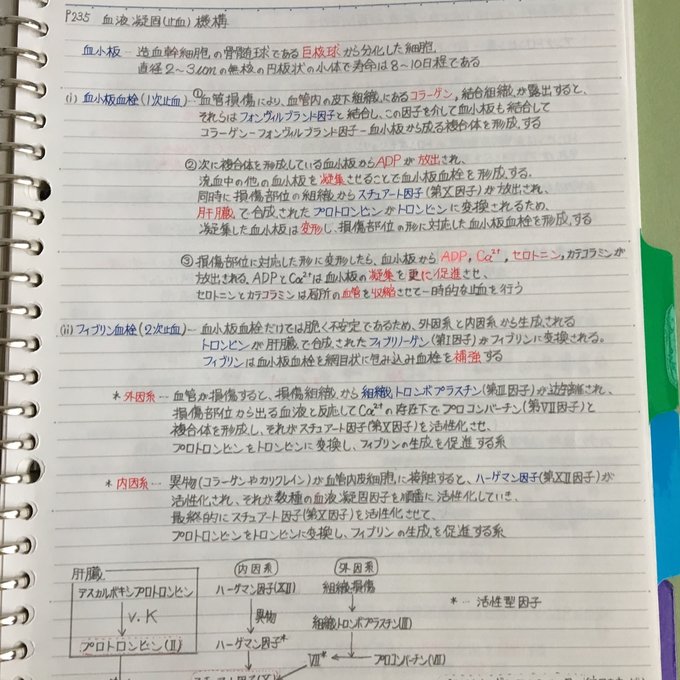 P235 血液凝固(止血)機構
血小板 … 造血幹細胞の骨髄球である巨核球から分化した細胞.
直径2~3㎛の無核の円板状の小体で寿命は8~10日程である
(i) 血小板血栓(1次止血) ― ①血管損傷により、血管内の皮下組織にあるコラーゲン,結合組織が露出すると、
それらはフォンヴィルブランド因子と結合し、この因子を介して血小板も結合して
コラーゲン-フォンヴィルブランド因子-血小板から成る複合体を形成する
②次に複合体を形成している血小板からADPが放出され、
流血中の他の血小板を凝集させることで血小板血栓を形成する.
同時に損傷部位の組織からスチュアート因子(第X因子)が放出され、
肝臓で合成されたプロトロンビンがトロンビンに変換されるため、
凝集した血小板は変形し、損傷部位の形に対応した血小板血栓を形成する
③ 損傷部位に対応した形に変形したら、血小板から ADP, Ca²⁺, セロトニン,カテコラミンが
放出される. ADPとCa²⁺は血小板の凝集を更に促進させ、
セロトニンとカテコラミンは局所の血管を収縮させて一時的な止血を行う
(ii) フィブリン血栓(2次止血) ― 血小板血栓だけでは脆く不安定であるため、外因系と内因系から生成される
トロンビンが肝臓で合成されたフィブリノーゲン(第I因子)がフィブリンに変換される。
フィブリンは血小板血栓を網目状に包み込み血栓を補強する
* 外因系 … 血管が損傷すると、損傷組織から組織トロンボプラスチン(第Ⅲ因子)が遊離され、
損傷部位から出る血液と反応してCa²⁺の存在下でプロコンバーチン(第Ⅶ因子)と
複合体を形成し、それがスチュアート因子(第X因子)を活性化させ、
プロトロンビンをトロンビンに変換し、フィブリンの生成を促進する系
* 内因系 … 異物(コラーゲンやカリクレイン)が血管内皮細胞に接触すると、ハーゲマン因子(第XⅡ因子)が
活性化され、それが数種の血液凝固因子を順番に活性化していき、
最終的にスチュアート因子(第X因子)を活性化させて
プロトロンビンをトロンビンに変換し、フィブリンの生成を促進する系
肝臓
デスカルボキシプロトロンビン
V.K
プロトロンビン(Ⅱ)
内因系
ハーゲマン因子(XⅡ)
異物
ハーゲマン因子*
外因系
組織損傷
組織トロンボプラスチン(Ⅲ)
Ⅶ* ← プロコンバーチン(Ⅶ)
* … 活性型因子